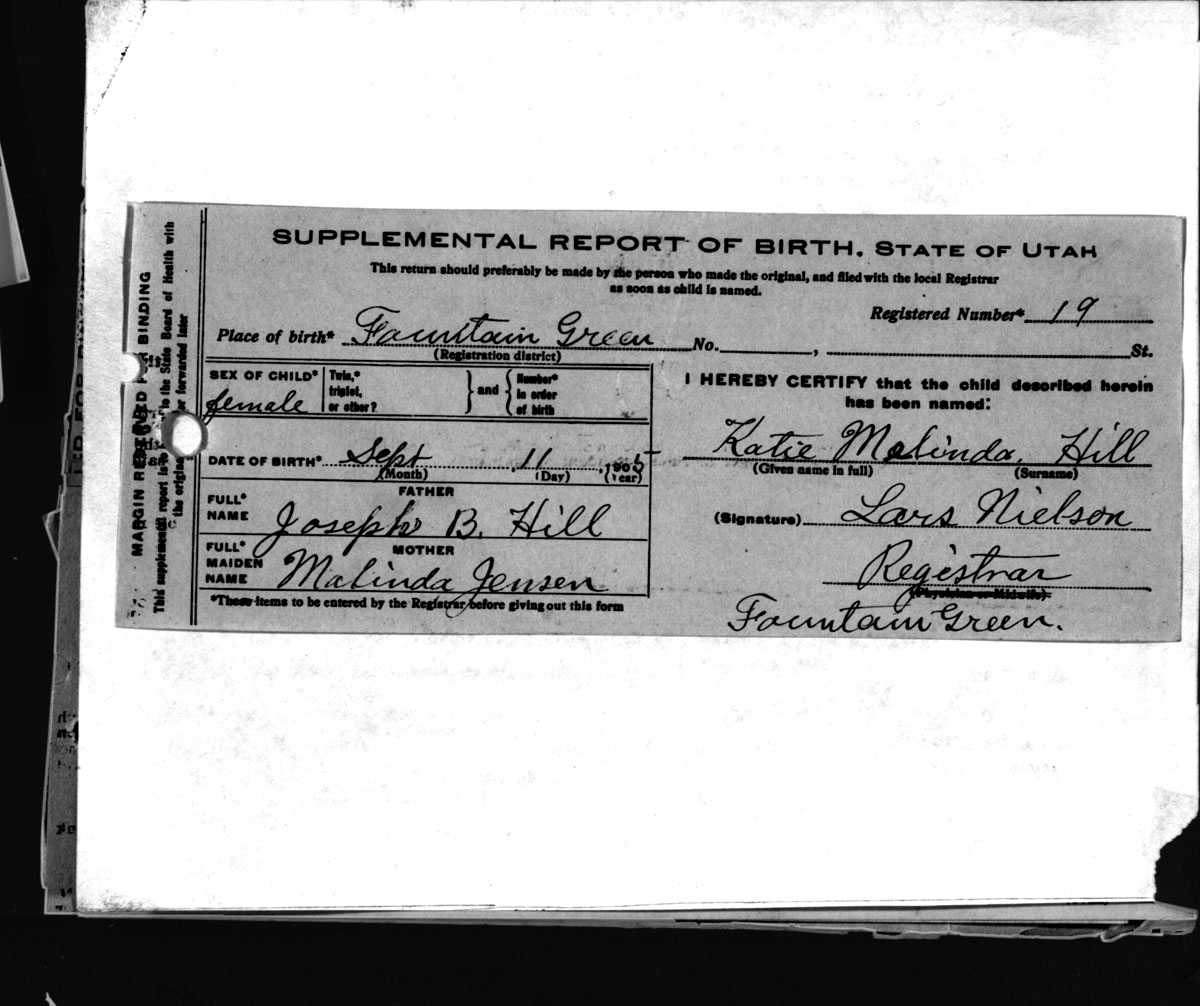 SUPPLEMENTAL REPORT OF BIRTH. STATE OF UTAH
This return should preferably be made by the person who made the original, and filed with the local Registrar
as soon as child is named.
Registered Number* 19
Place of birth* Fountain Green No. , St.
(Registration district)
SEX OF CHILD* female
Twin,*
triplet,
or other?
} and {
Number*
in order
of birth
DATE OF BIRTH* Sept , 11 , 1905
(Month) (Day) (Year)
FATHER
FULL*
NAME Joseph B. Hill
MOTHER
FULL*
MAIDEN
NAME Malinda Jensen
*These items to be entered by the Registrar before giving out this form
I HEREBY CERTIFY that the child described herein
has been named:
Katie Malinda Hill
(Given name in full) (Surname)
(Signature) Lars Nielson
Registrar
(Physician or Midwife)
Fountain Green.
MARGIN RESERVED FOR BINDING
This supplemental report is to the State Board of Health with
the original forwarded later